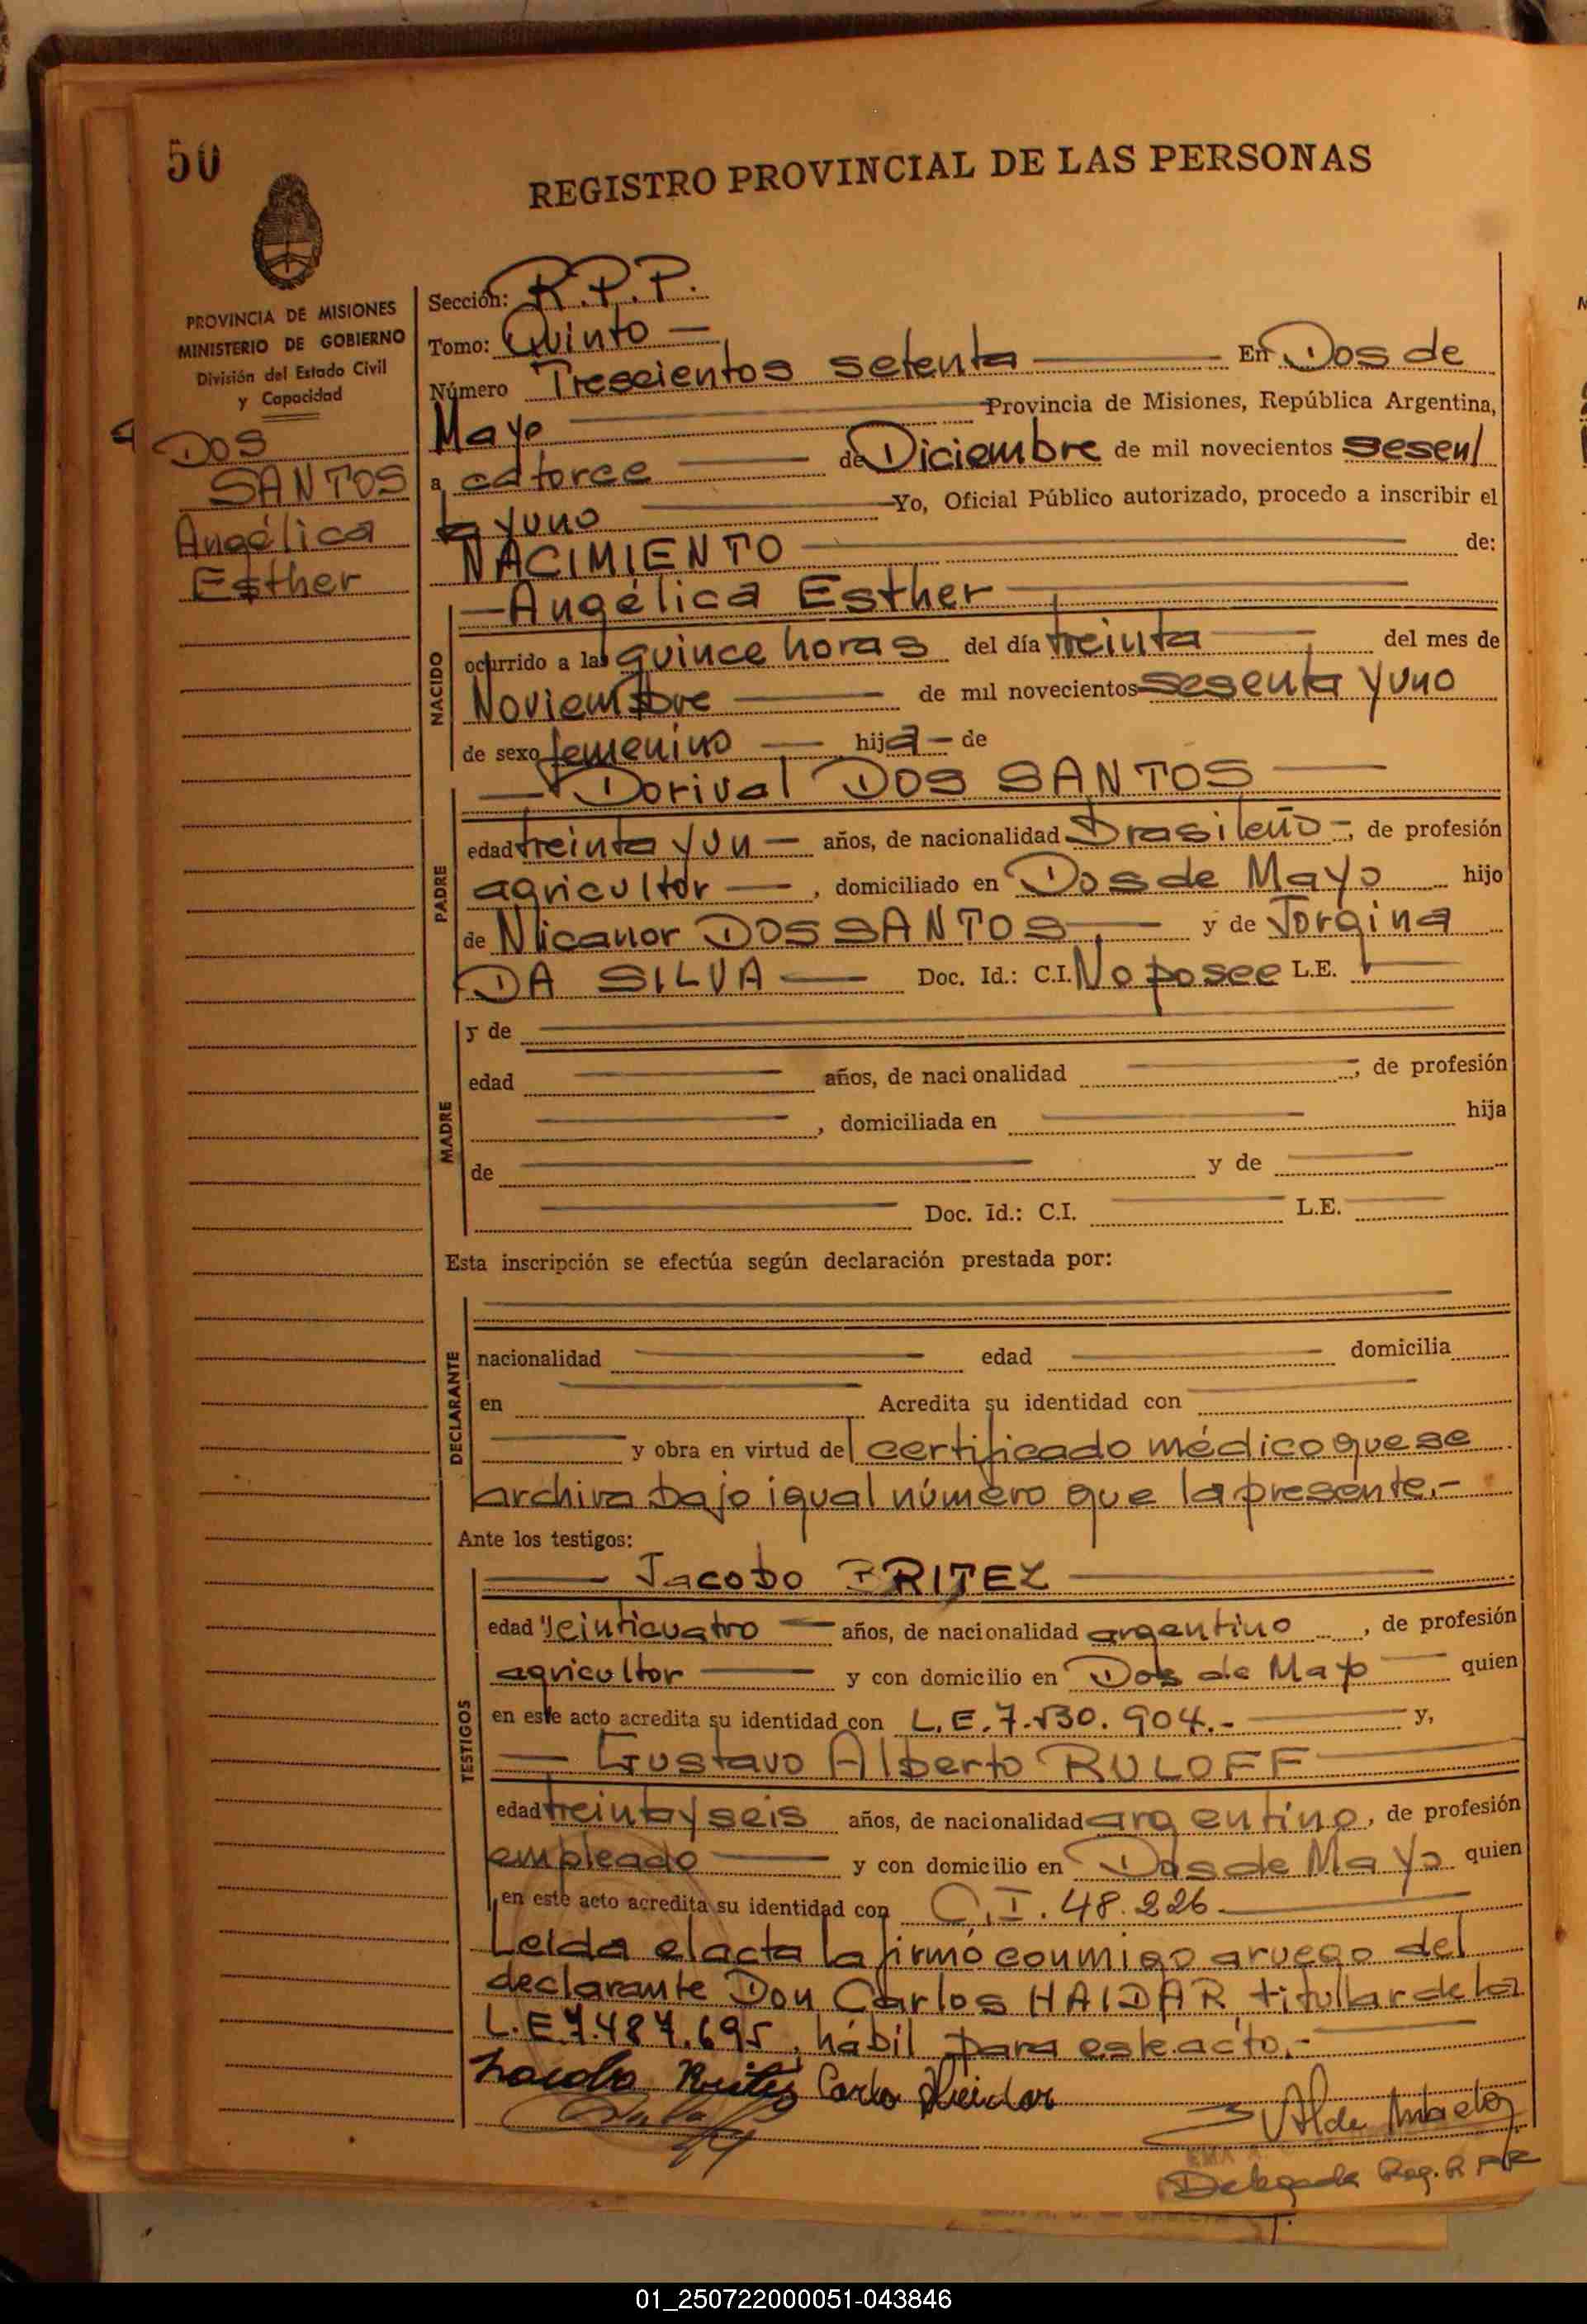 50
REGISTRO PROVINCIAL DE LAS PERSONAS
PROVINCIA DE MISIONES
MINISTERIO DE GOBIERNO
División del Estado Civil
y Capacidad
DOS
SANTOS
Angélica
Esther
Sección: R.P.P.
Tomo: Quinto
Número Trescientos setenta En Dos de
Mayo Provincia de Misiones, República Argentina,
a catorce de Diciembre de mil novecientos sesen
ta y uno Yo, Oficial Público autorizado, procedo a inscribir el
NACIMIENTO de:
NACIDO
Angélica Esther
ocurrido a las quince horas del día treinta del mes de
Noviembre de mil novecientos sesenta y uno
de sexo femenino hija de
PADRE
Dorival DOS SANTOS
edad treinta y un años, de nacionalidad brasileño, de profesión
agricultor, domiciliado en Dos de Mayo hijo
de Nicanor DOS SANTOS y de Jorgina
DA SILVA Doc. Id.: C.I. No posee L.E.
MADRE
y de
edad años, de nacionalidad , de profesión
, domiciliada en hija
de y de
Doc. Id.: C.I. L.E.
Esta inscripción se efectúa según declaración prestada por:
DECLARANTE
nacionalidad edad domicilia
en Acredita su identidad con
y obra en virtud del certificado médico que se
archiva bajo igual número que la presente.-
Ante los testigos:
TESTIGOS
Jacobo BRITEZ
edad veinticuatro años, de nacionalidad argentino, de profesión
agricultor y con domicilio en Dos de Mayo quien
en este acto acredita su identidad con L.E. 7.530.904.- y,
Gustavo Alberto RULOFF
edad treinta y seis años, de nacionalidad argentino, de profesión
empleado y con domicilio en Dos de Mayo quien
en este acto acredita su identidad con C.I. 48.226
Leída el acta la firmó conmigo a ruego del
declarante Don Carlos HAIDAR titular de la
L.E. 7.487.695, hábil para este acto.-
Carlos Heidar
Delegada Reg.
01_250722000051-043846